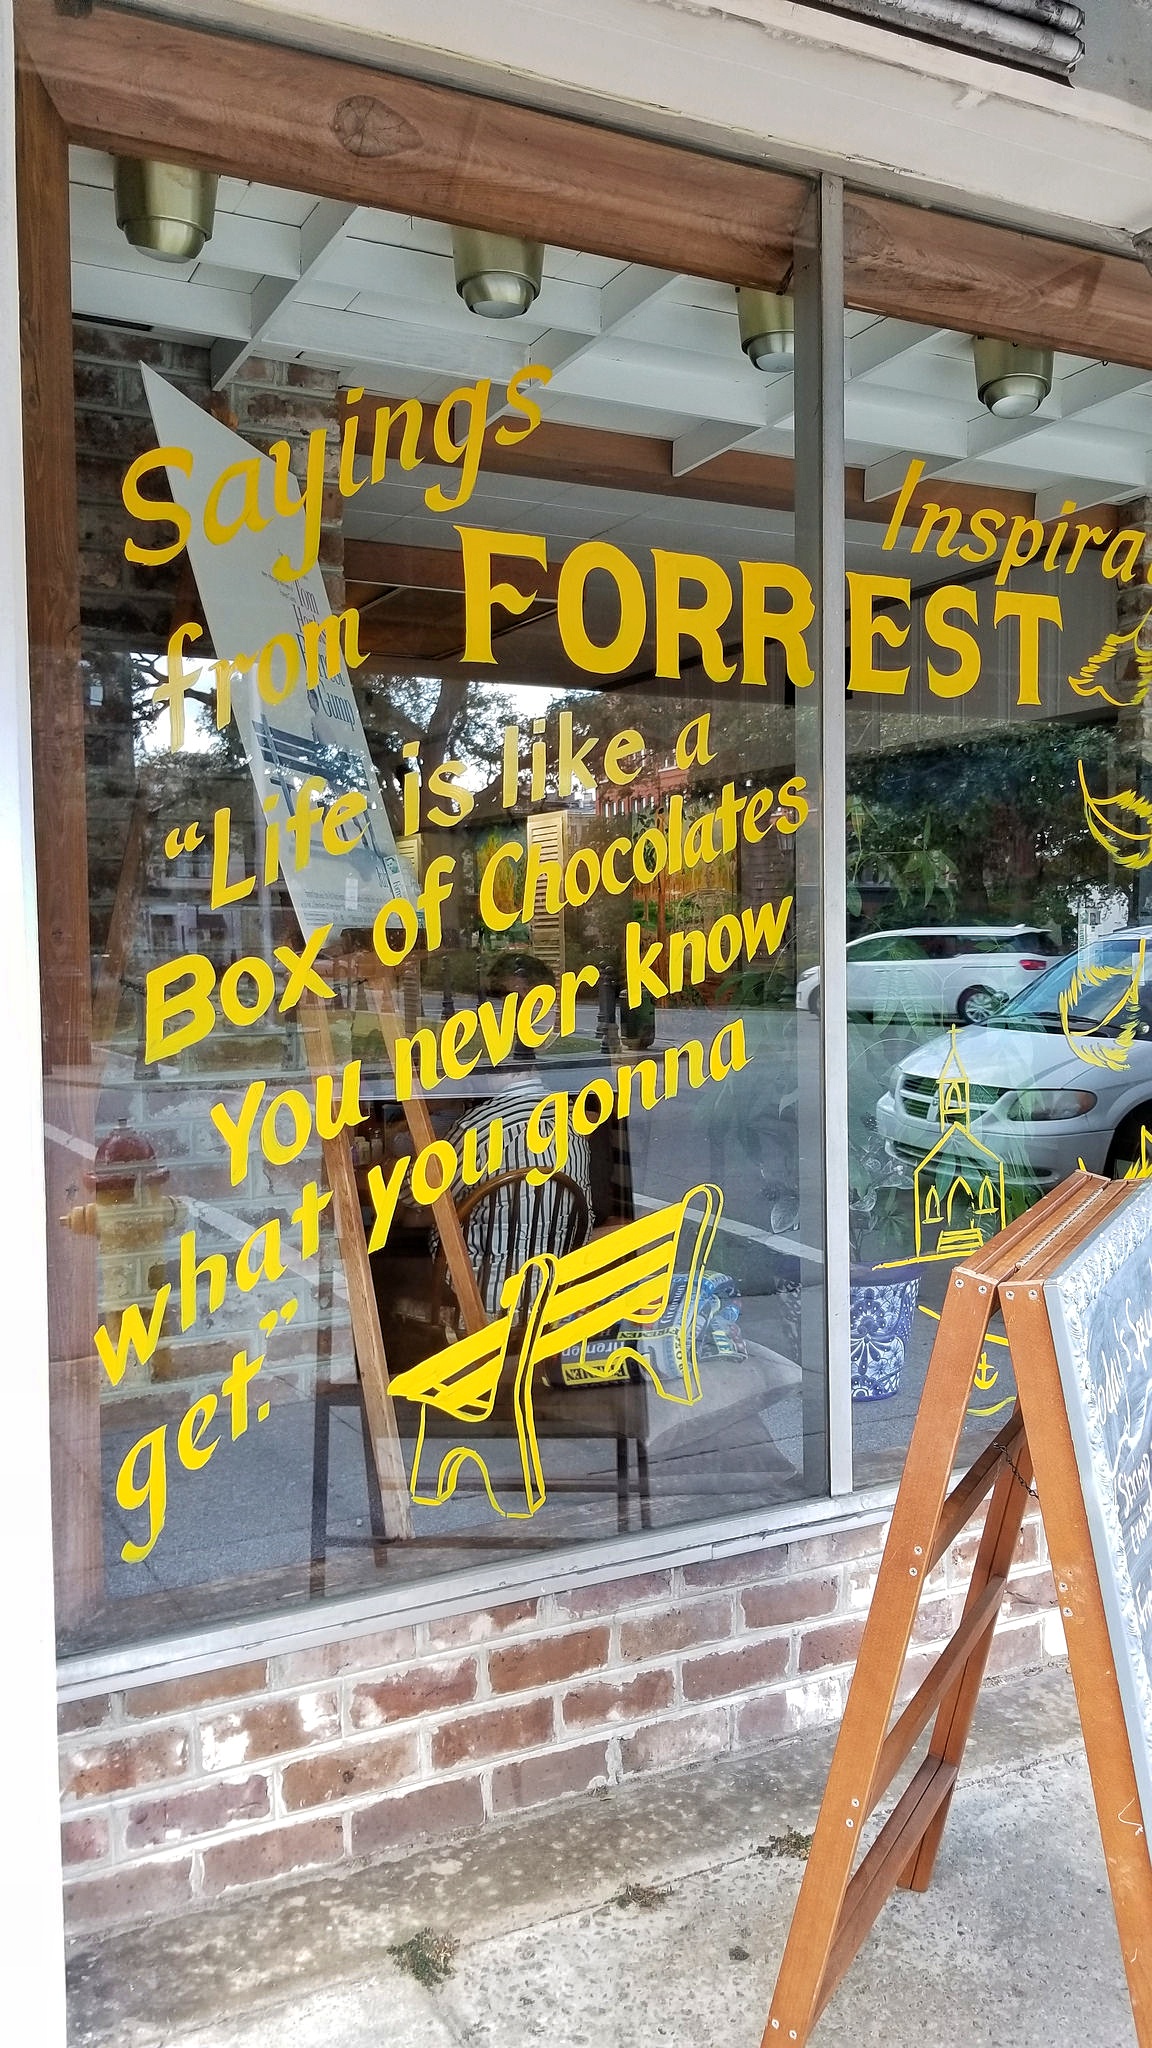 Sayings
from FORREST
"Life is like a
Box of Chocolates
You never know
what you gonna
get."
Inspira
Tom
Forrest
Gump
FIREMEN